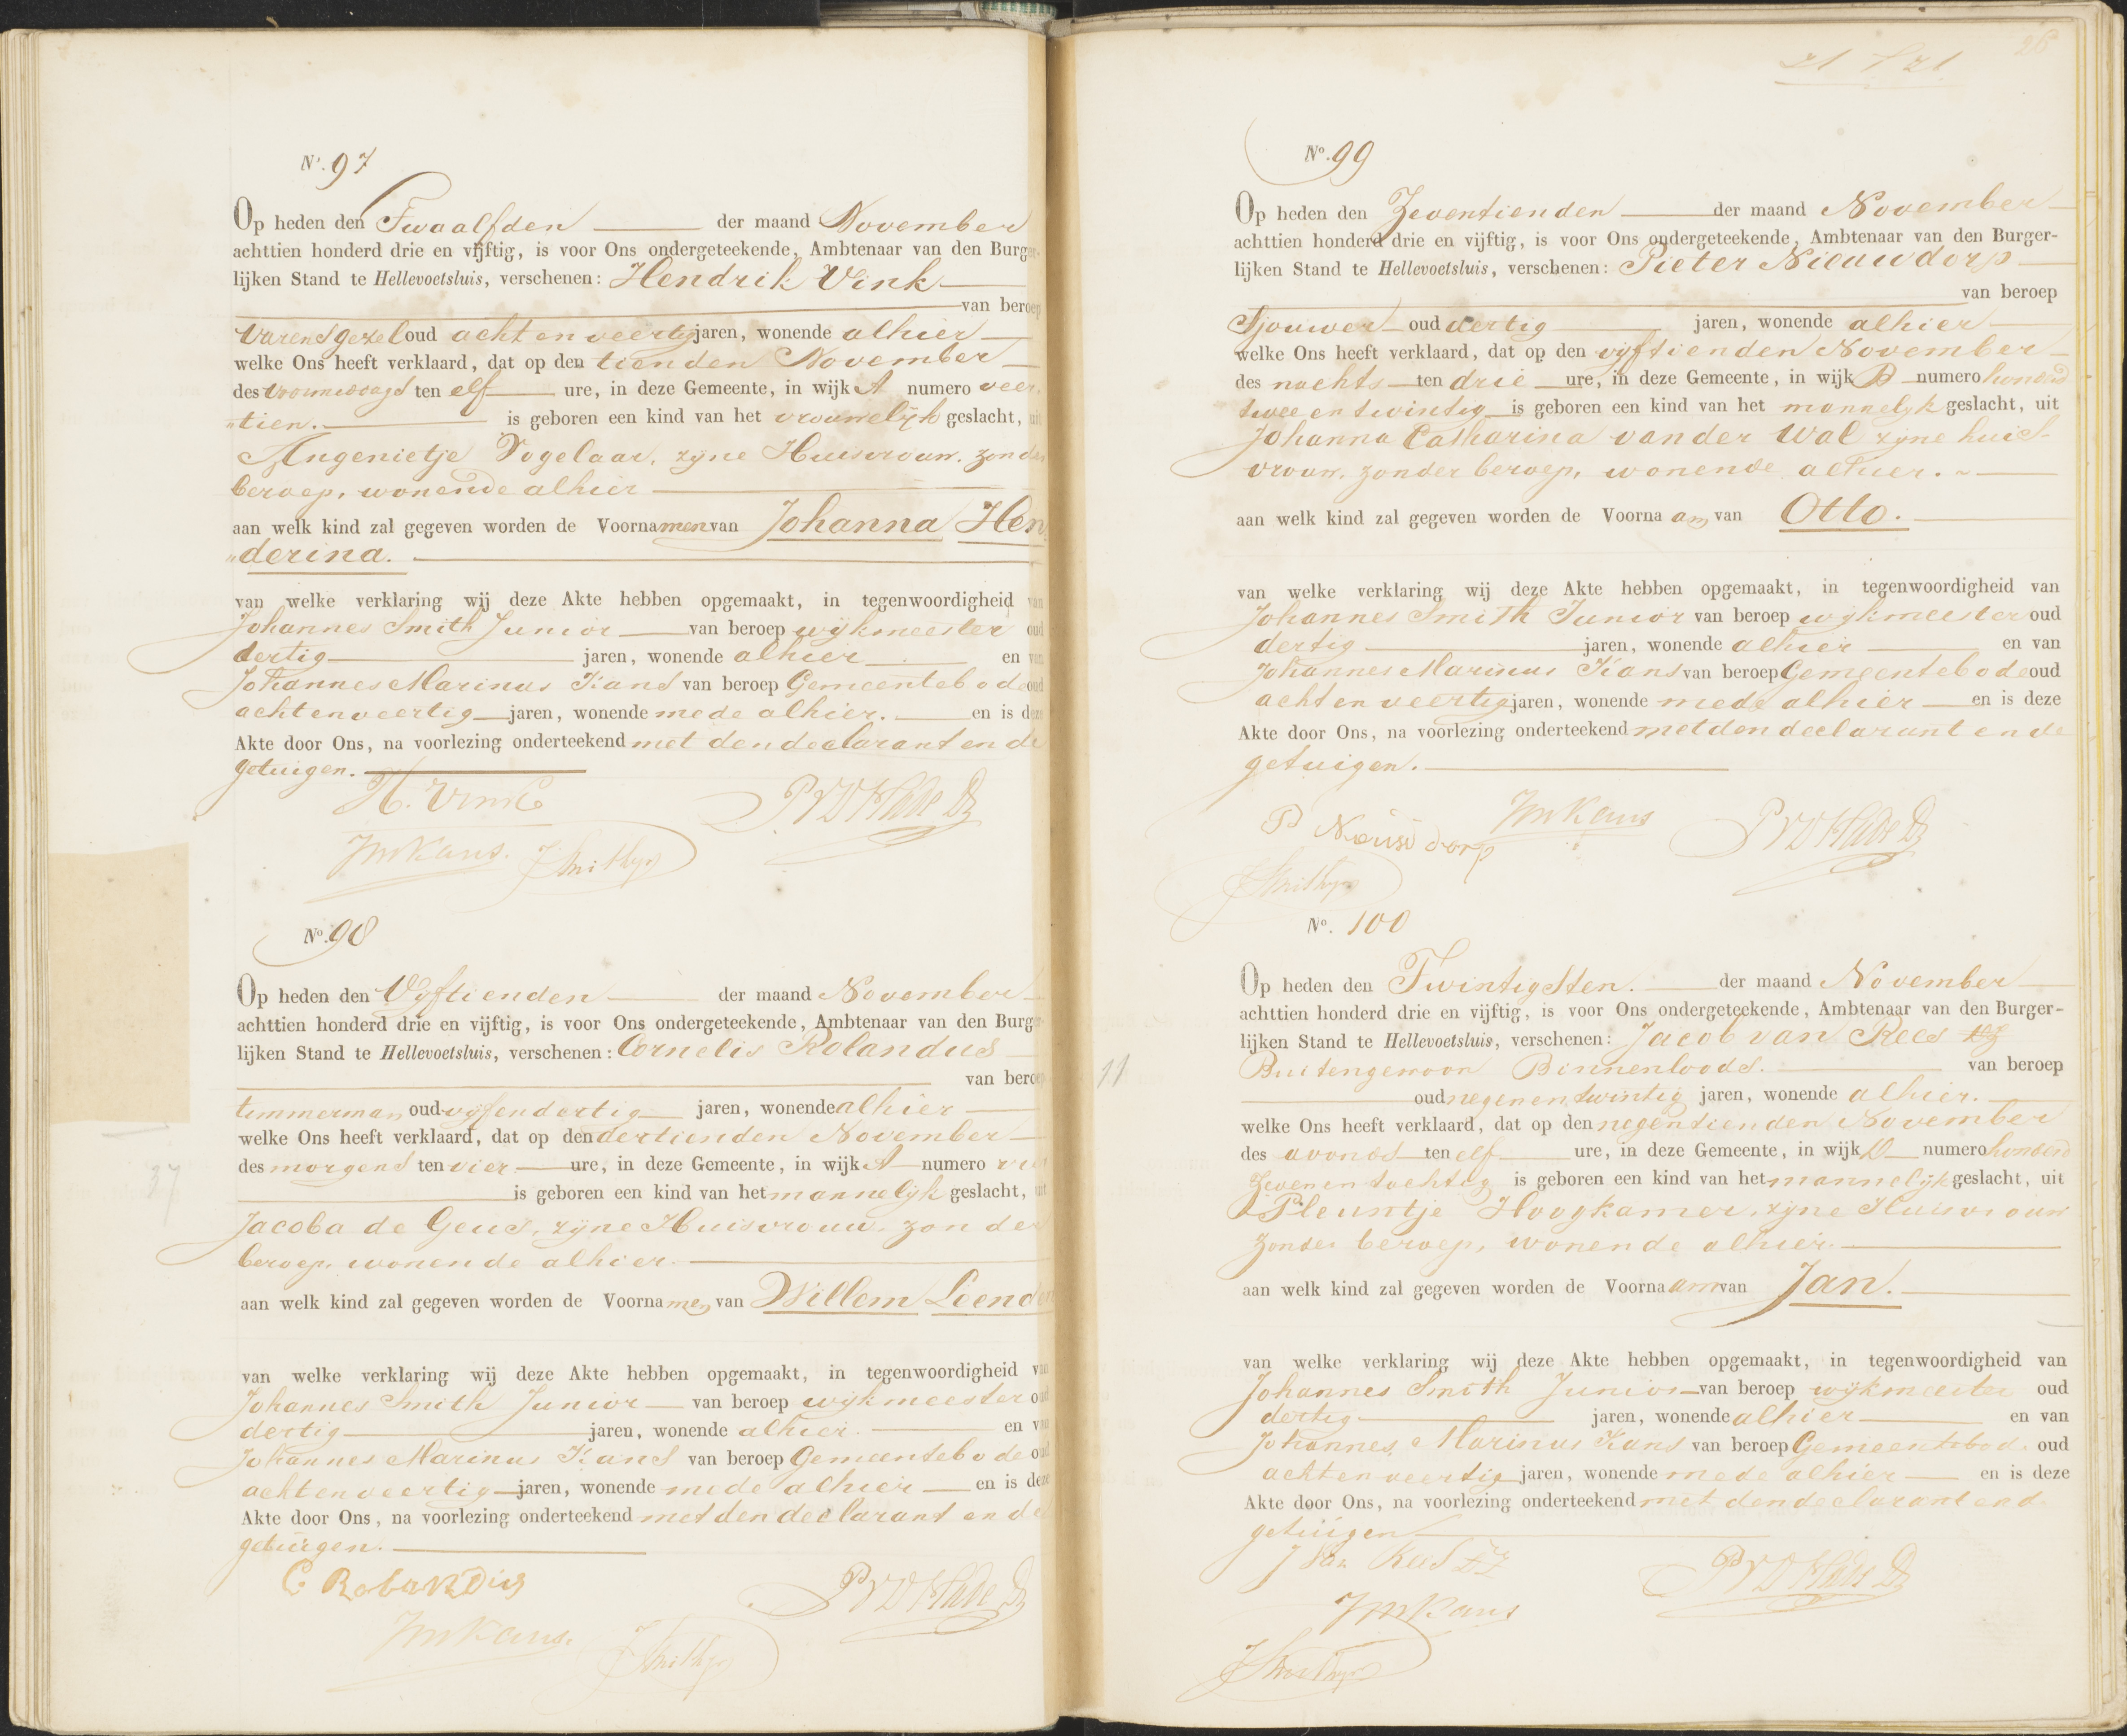 No. 97
Op heden den Twaalfden der maand November
achttien honderd drie en vijftig, is voor Ons ondergeteekende, Ambtenaar van den Burger-
lijken Stand te Hellevoetsluis, verschenen: Hendrik Vink
van beroep
varensgezel oud acht en veertig jaren, wonende alhier
welke Ons heeft verklaard, dat op den tienden November
des voormiddags ten elf ure, in deze Gemeente, in wijk A numero veer
„tien. is geboren een kind van het vrouwelijk geslacht, uit
Angenietje Vogelaar, zijne Huisvrouw, zonder
beroep, wonende alhier
aan welk kind zal gegeven worden de Voornamen van Johanna Hen
„derina.
van welke verklaring wij deze Akte hebben opgemaakt, in tegenwoordigheid van
Johannes Smith Junior van beroep wijkmeester oud
dertig jaren, wonende alhier en van
Johannes Marinus Kans van beroep Gemeentebode oud
acht en veertig jaren, wonende mede alhier. en is deze
Akte door Ons, na voorlezing onderteekend met den declarant en de
getuigen.
H. Vink
JMKans. JSmith jr
No. 98
Op heden den Vijftienden der maand November
achttien honderd drie en vijftig, is voor Ons ondergeteekende, Ambtenaar van den Burger-
lijken Stand te Hellevoetsluis, verschenen: Cornelis Rolandus
van beroep
timmerman oud vijf en dertig jaren, wonende alhier
welke Ons heeft verklaard, dat op den dertienden November
des morgens ten vier ure, in deze Gemeente, in wijk A numero
is geboren een kind van het mannelijk geslacht, uit
Jacoba de Geus, zijne Huisvrouw, zonder
beroep, wonende alhier.
aan welk kind zal gegeven worden de Voornamen van Willem Leender
van welke verklaring wij deze Akte hebben opgemaakt, in tegenwoordigheid van
Johannes Smith Junior van beroep wijkmeester oud
dertig jaren, wonende alhier. en van
Johannes Marinus Kans van beroep Gemeentebode oud
acht en veertig jaren, wonende mede alhier en is deze
Akte door Ons, na voorlezing onderteekend met den declarant en de
getuigen.
C Rolandus
JMKans. JSmith jr
37
26
No. 99
Op heden den Zeventienden der maand November
achttien honderd drie en vijftig, is voor Ons ondergeteekende, Ambtenaar van den Burger-
lijken Stand te Hellevoetsluis, verschenen: Pieter Nieuwdorp
van beroep
Sjouwer oud veertig jaren, wonende alhier
welke Ons heeft verklaard, dat op den vijftienden November
des nachts ten drie ure, in deze Gemeente, in wijk D numero honderd
twee en twintig is geboren een kind van het mannelijk geslacht, uit
Johanna Catharina van der Wal zijne huis-
vrouw, zonder beroep, wonende alhier.
aan welk kind zal gegeven worden de Voornaam van Otto.
van welke verklaring wij deze Akte hebben opgemaakt, in tegenwoordigheid van
Johannes Smith Junior van beroep wijkmeester oud
dertig jaren, wonende alhier en van
Johannes Marinus Kans van beroep Gemeentebode oud
acht en veertig jaren, wonende mede alhier en is deze
Akte door Ons, na voorlezing onderteekend met den declarant en de
getuigen.
P Nieuwdorp JMKans
JSmith jr
No. 100
Op heden den Twintigsten. der maand November
achttien honderd drie en vijftig, is voor Ons ondergeteekende, Ambtenaar van den Burger-
lijken Stand te Hellevoetsluis, verschenen: Jacob van Rees
Buitengewoon Binnenloods. van beroep
oud negen en twintig jaren, wonende alhier.
welke Ons heeft verklaard, dat op den negentienden November
des avonds ten elf ure, in deze Gemeente, in wijk D numero honderd
zeven en tachtig is geboren een kind van het mannelijk geslacht, uit
Pleuntje Hoogkamer, zijne Huisvrouw
zonder beroep, wonende alhier.
aan welk kind zal gegeven worden de Voornaam van Jan.
van welke verklaring wij deze Akte hebben opgemaakt, in tegenwoordigheid van
Johannes Smith Junior van beroep wijkmeester oud
dertig jaren, wonende alhier en van
Johannes Marinus Kans van beroep Gemeentebode oud
acht en veertig jaren, wonende mede alhier en is deze
Akte door Ons, na voorlezing onderteekend met den declarant en de
getuigen
J Van Rees
JMKans
JSmith jr
11